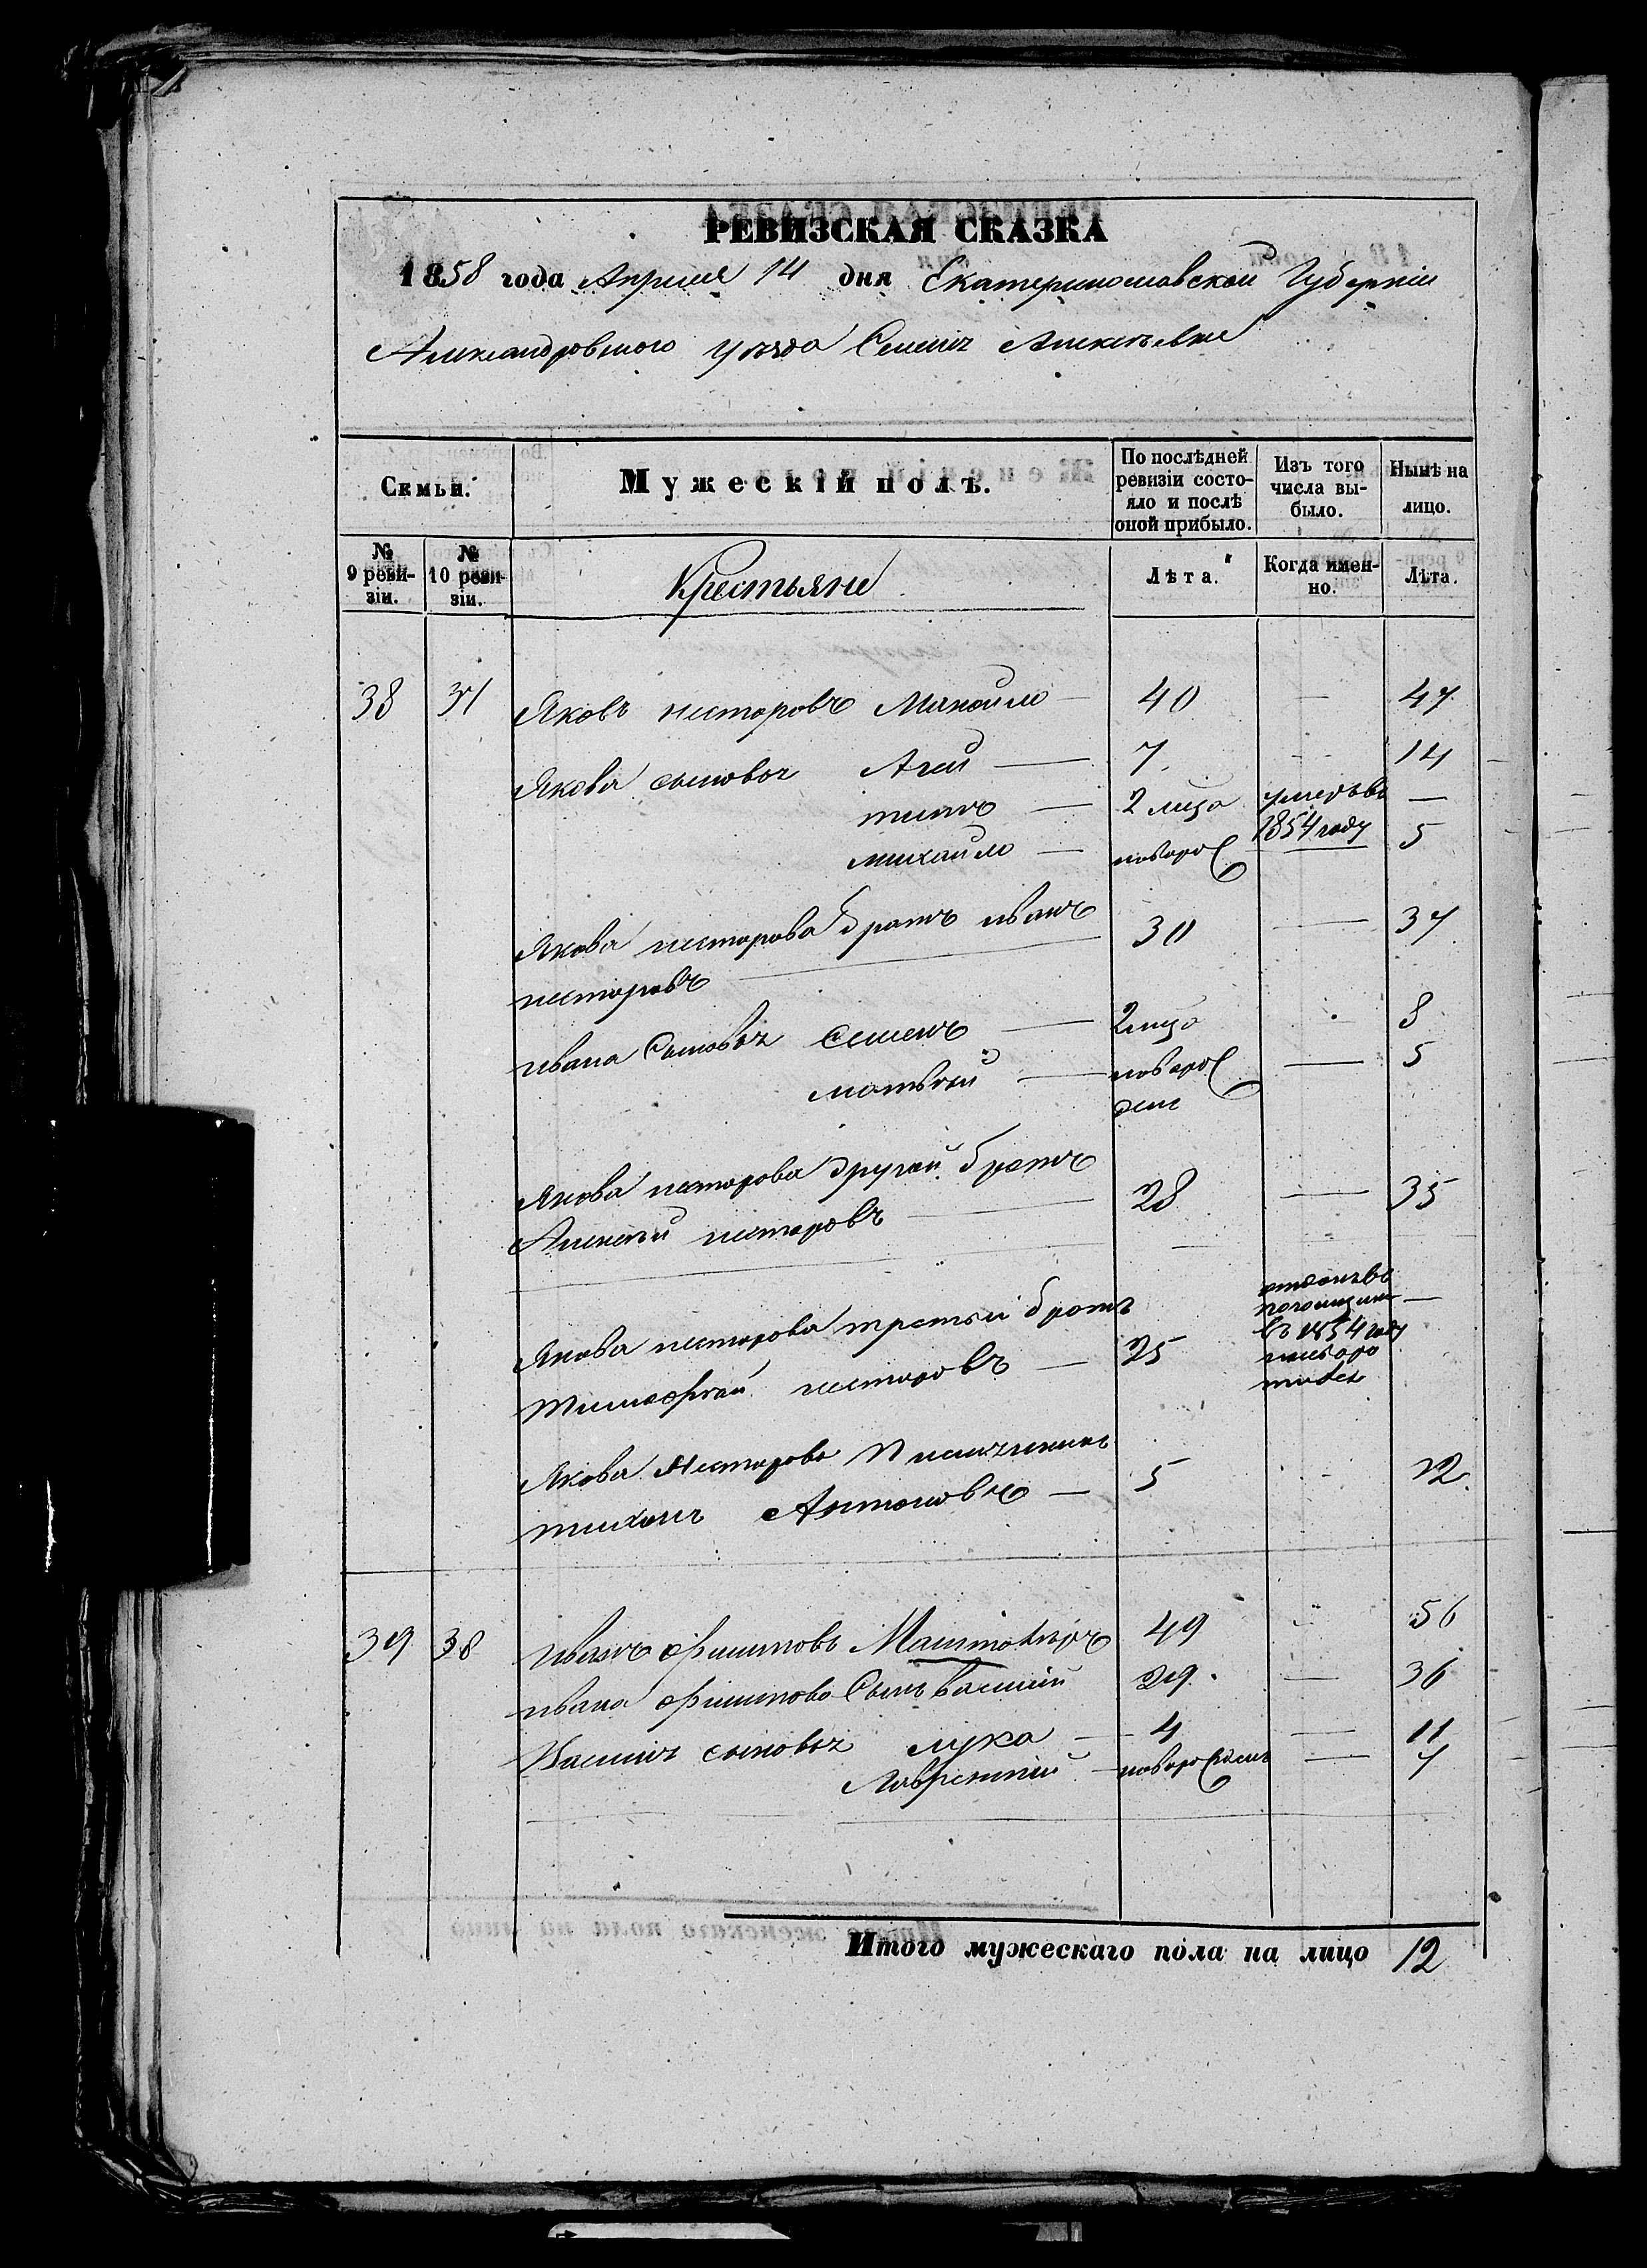 РЕВИЗСКАЯ СКАЗКА
1858 года Апреля 14 дня Екатеринославской Губерніи
Александровского уезда Селенiя Алексѣевки
Семьи. Мужескій полъ. По послѣдней ревизіи состояло и послѣ оной прибыло. Изъ того числа выбыло. Нынѣ на лицо.
№ 9 ревизіи. № 10 ревизіи. Крестьяне Лѣта. Когда именно. Лѣта.
38 37 Яковъ несторовъ Манойло 40 — 47
Якова сыновья Агей — 7 — 14
титъ — 2 лица умеръ въ 1854 году —
михайло — новорос 5
Якова несторова братъ иванъ 30 — 37
несторовъ
ивана Сыновья Семенъ — 2 лица 8
матвей — новорож — 5
ден
Якова несторова другой братъ
Алексей несторовъ 28 — 35
Якова несторова третьи братъ —
тимофей несторовъ — 25 въ 1854 году
Якова Несторова Племянникъ
тихонъ Антоновъ — 5 12
39 38 иванъ филиповъ 49 — 56
ивана филипова Сынъ василий 29 — 36
Василия сыновья лука — 4 — 11
Лаврентий — новорожденъ — 7
Итого мужескаго пола на лицо 12